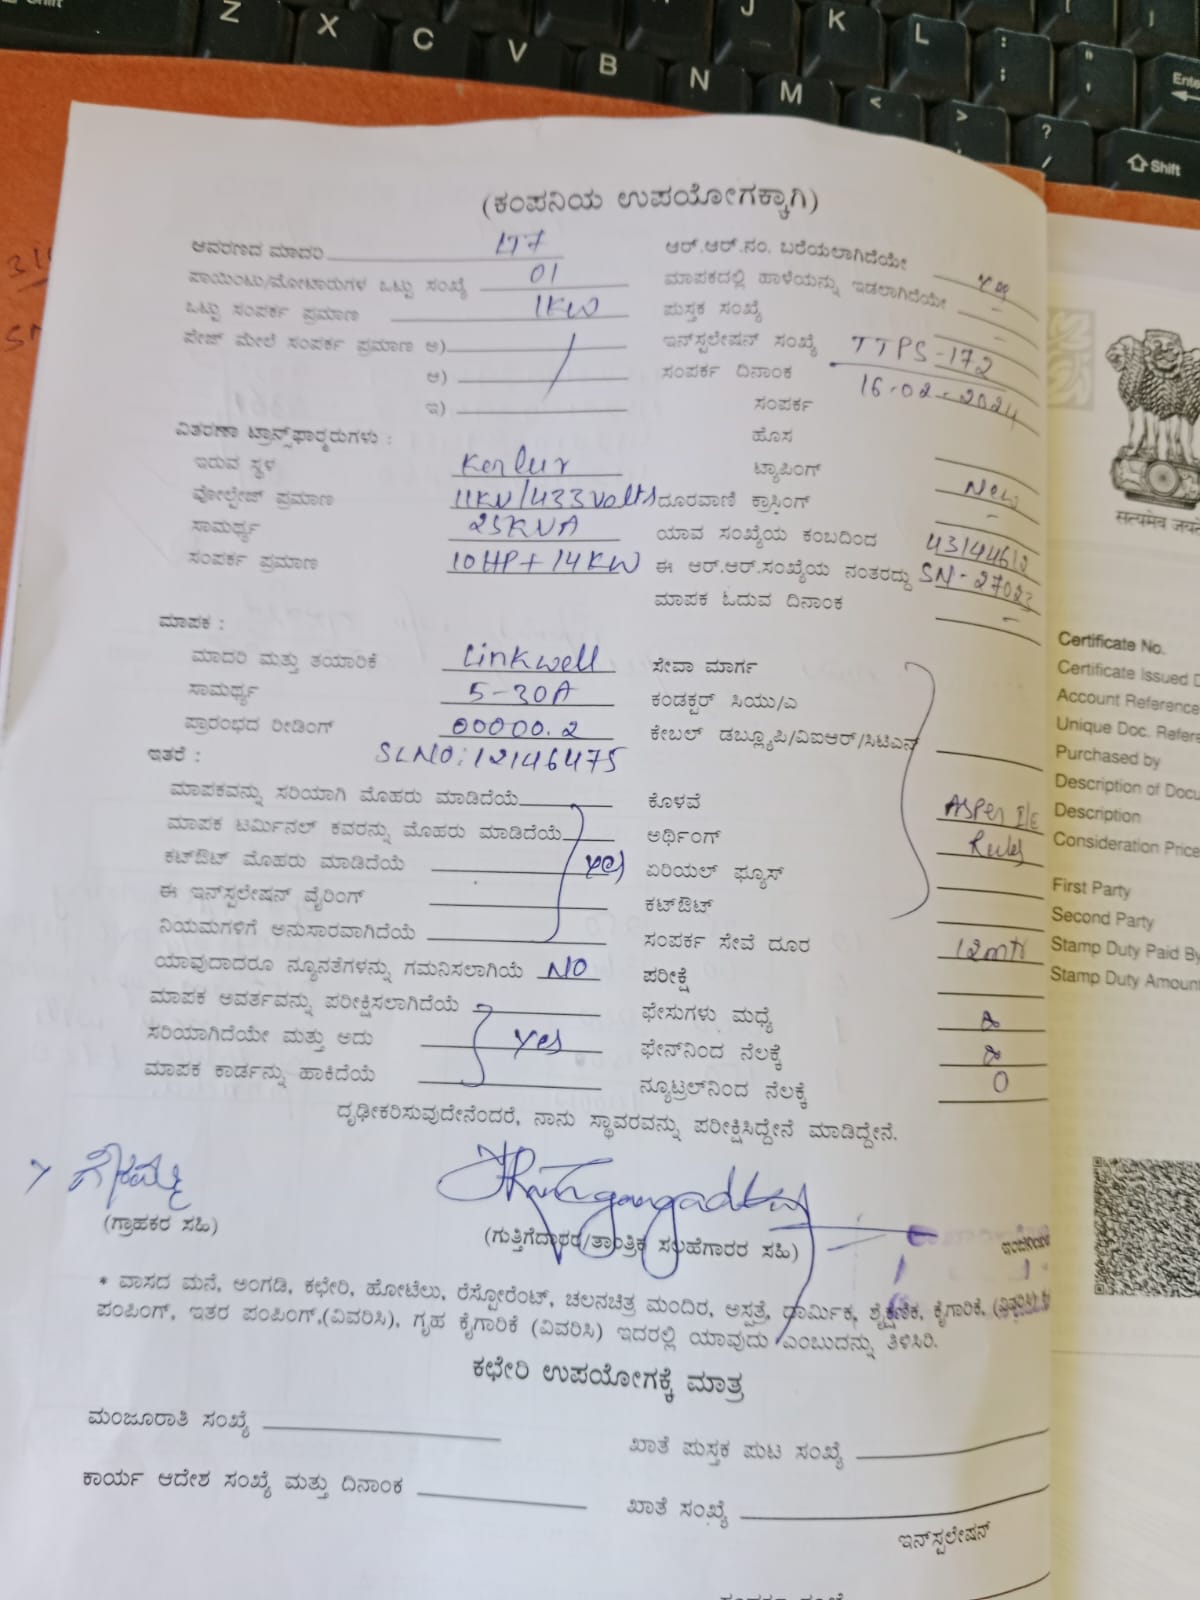 Shift
Z X C V B N M < > ? /
J K L : ; " '
Enter
Shift
(ಕಂಪನಿಯ ಉಪಯೋಗಕ್ಕಾಗಿ)
ಆವರಣದ ಮಾದರಿ LT7
ಪಾಯಿಂಟು/ಮೋಟಾರುಗಳ ಒಟ್ಟು ಸಂಖ್ಯೆ 01
ಒಟ್ಟು ಸಂಪರ್ಕ ಪ್ರಮಾಣ 1KW
ಪೇಜ್ ಮೇಲೆ ಸಂಪರ್ಕ ಪ್ರಮಾಣ ಅ)
ಆ)
ಇ)
ವಿತರಣಾ ಟ್ರಾನ್ಸ್‌ಫಾರ್‍ಮರುಗಳು :
ಇರುವ ಸ್ಥಳ Kerlur
ವೋಲ್ಟೇಜ್ ಪ್ರಮಾಣ 11KV/433volts
ಸಾಮರ್ಥ್ಯ 25KVA
ಸಂಪರ್ಕ ಪ್ರಮಾಣ 10HP+14KW
ಮಾಪಕ :
ಮಾದರಿ ಮತ್ತು ತಯಾರಿಕೆ Linkwell
ಸಾಮರ್ಥ್ಯ 5-30A
ಪ್ರಾರಂಭದ ರೀಡಿಂಗ್ 00000.2
ಇತರೆ : SLNO:12146475
ಮಾಪಕವನ್ನು ಸರಿಯಾಗಿ ಮೊಹರು ಮಾಡಿದೆಯೆ
ಮಾಪಕ ಟರ್ಮಿನಲ್ ಕವರನ್ನು ಮೊಹರು ಮಾಡಿದೆಯೆ
ಕಟ್‌ಔಟ್ ಮೊಹರು ಮಾಡಿದೆಯೆ yes
ಈ ಇನ್‌ಸ್ಟಲೇಷನ್ ವೈರಿಂಗ್
ನಿಯಮಗಳಿಗೆ ಅನುಸಾರವಾಗಿದೆಯೆ
ಯಾವುದಾದರೂ ನ್ಯೂನತೆಗಳನ್ನು ಗಮನಿಸಲಾಗಿಯೆ NO
ಮಾಪಕ ಆವರ್ತವನ್ನು ಪರೀಕ್ಷಿಸಲಾಗಿದೆಯೆ
ಸರಿಯಾಗಿದೆಯೇ ಮತ್ತು ಅದು yes
ಮಾಪಕ ಕಾರ್ಡನ್ನು ಹಾಕಿದೆಯೆ
ಆರ್.ಆರ್.ನಂ. ಬರೆಯಲಾಗಿದೆಯೇ yes
ಮಾಪಕದಲ್ಲಿ ಹಾಳೆಯನ್ನು ಇಡಲಾಗಿದೆಯೇ -
ಪುಸ್ತಕ ಸಂಖ್ಯೆ -
ಇನ್‌ಸ್ಟಲೇಷನ್ ಸಂಖ್ಯೆ TTPS-172
ಸಂಪರ್ಕ ದಿನಾಂಕ 16-02-2024
ಸಂಪರ್ಕ
ಹೊಸ
ಟ್ಯಾಪಿಂಗ್ New
ದೂರವಾಣಿ ಕ್ರಾಸಿಂಗ್ -
ಯಾವ ಸಂಖ್ಯೆಯ ಕಂಬದಿಂದ
ಈ ಆರ್.ಆರ್.ಸಂಖ್ಯೆಯ ನಂತರದ್ದು SN-27023
ಮಾಪಕ ಓದುವ ದಿನಾಂಕ -
ಸೇವಾ ಮಾರ್ಗ
ಕಂಡಕ್ಟರ್ ಸಿಯು/ಎ
ಕೇಬಲ್ ಡಬ್ಲ್ಯೂಪಿ/ವಿಐಆರ್/ಸಿಟಿಎಸ್
ಕೊಳವೆ Asper I/E
ಅರ್ಥಿಂಗ್ Rules
ಏರಿಯಲ್ ಫ್ಯೂಸ್
ಕಟ್‌ಔಟ್
ಸಂಪರ್ಕ ಸೇವೆ ದೂರ 12mtr
ಪರೀಕ್ಷೆ
ಫೇಸುಗಳು ಮಧ್ಯೆ ∞
ಫೇಸ್‌ನಿಂದ ನೆಲಕ್ಕೆ ∞
ನ್ಯೂಟ್ರಲ್‌ನಿಂದ ನೆಲಕ್ಕೆ 0
ದೃಢೀಕರಿಸುವುದೇನೆಂದರೆ, ನಾನು ಸ್ಥಾವರವನ್ನು ಪರೀಕ್ಷಿಸಿದ್ದೇನೆ ಮಾಡಿದ್ದೇನೆ.
(ಗ್ರಾಹಕರ ಸಹಿ)
(ಗುತ್ತಿಗೆದಾರರ/ತಾಂತ್ರಿಕ ಸಲಹೆಗಾರರ ಸಹಿ)
* ವಾಸದ ಮನೆ, ಅಂಗಡಿ, ಕಛೇರಿ, ಹೋಟೆಲು, ರೆಸ್ಟೋರೆಂಟ್, ಚಲನಚಿತ್ರ ಮಂದಿರ, ಅಸ್ಪತ್ರೆ, ಧಾರ್ಮಿಕ, ಶೈಕ್ಷಣಿಕ, ಕೈಗಾರಿಕೆ,
ಪಂಪಿಂಗ್, ಇತರ ಪಂಪಿಂಗ್,(ವಿವರಿಸಿ), ಗೃಹ ಕೈಗಾರಿಕೆ (ವಿವರಿಸಿ) ಇದರಲ್ಲಿ ಯಾವುದು ಎಂಬುದನ್ನು ತಿಳಿಸಿರಿ.
ಕಛೇರಿ ಉಪಯೋಗಕ್ಕೆ ಮಾತ್ರ
ಮಂಜೂರಾತಿ ಸಂಖ್ಯೆ
ಖಾತೆ ಪುಸ್ತಕ ಪುಟ ಸಂಖ್ಯೆ
ಕಾರ್ಯ ಆದೇಶ ಸಂಖ್ಯೆ ಮತ್ತು ದಿನಾಂಕ
ಖಾತೆ ಸಂಖ್ಯೆ
ಇನ್‌ಸ್ಟಲೇಷನ್
सत्यमेव जयते
Certificate No.
Certificate Issued D
Account Reference
Unique Doc. Refere
Purchased by
Description of Docu
Description
Consideration Price
First Party
Second Party
Stamp Duty Paid By
Stamp Duty Amount